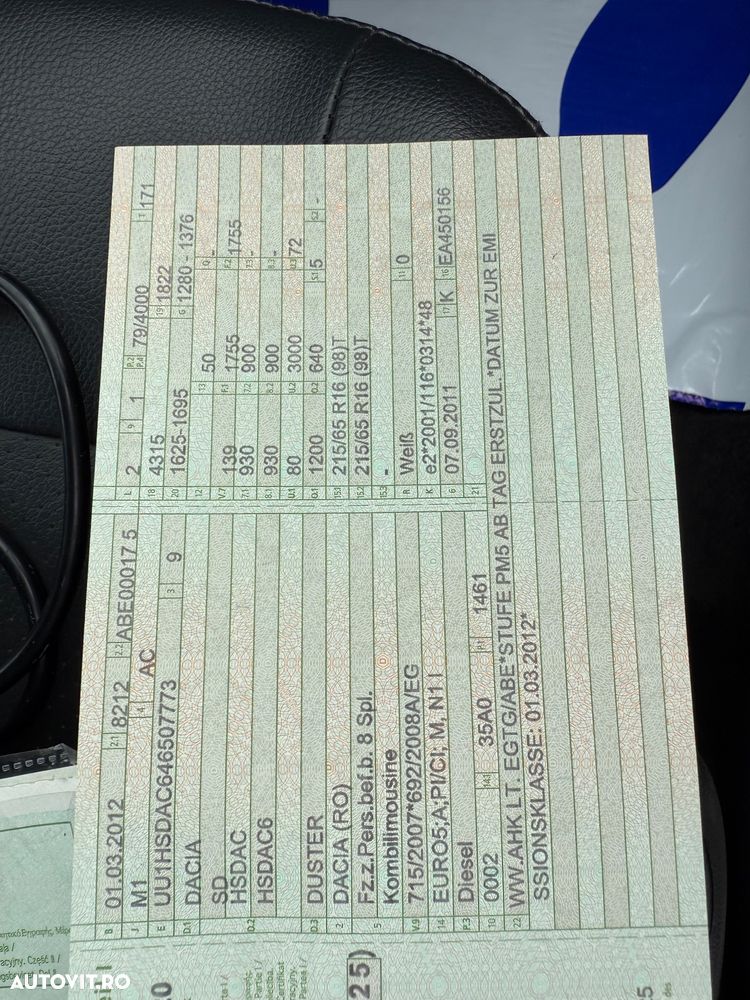 B 01.03.2012 2.1 8212 2.2 ABE00017 5 L 2 9 1 P.2 P.4 79/4000 T 171
J M1 4 AC 18 4315 19 1822
E UU1HSDAC646507773 3 9 20 1625-1695 G 1280 - 1376
D.1 DACIA 12 - 13 50 Q -
D.2 SD V.7 139 F.1 1755 F.2 1755
HSDAC 7.1 930 7.2 900 7.3 -
HSDAC6 8.1 930 8.2 900 8.3 -
U.1 80 U.2 3000 U.3 72
D.3 DUSTER O.1 1200 O.2 640 S.1 5 S.2 -
2 DACIA (RO) 15.1 215/65 R16 (98)T
5 Fz.z.Pers.bef.b. 8 Spl. 15.2 215/65 R16 (98)T
Kombilimousine 15.3 -
V.9 715/2007*692/2008A/EG R Weiß 11 0
14 EURO5;A;PI/CI; M, N1 I K e2*2001/116*0314*48
P.3 Diesel 6 07.09.2011 17 K 16 EA450156
10 0002 14.1 35A0 P.1 1461 21
22 WW.AHK LT. EGTG/ABE*STUFE PM5 AB TAG ERSTZUL.*DATUM ZUR EMI
SSIONSKLASSE: 01.03.2012*
25)
AUTOVIT.RO